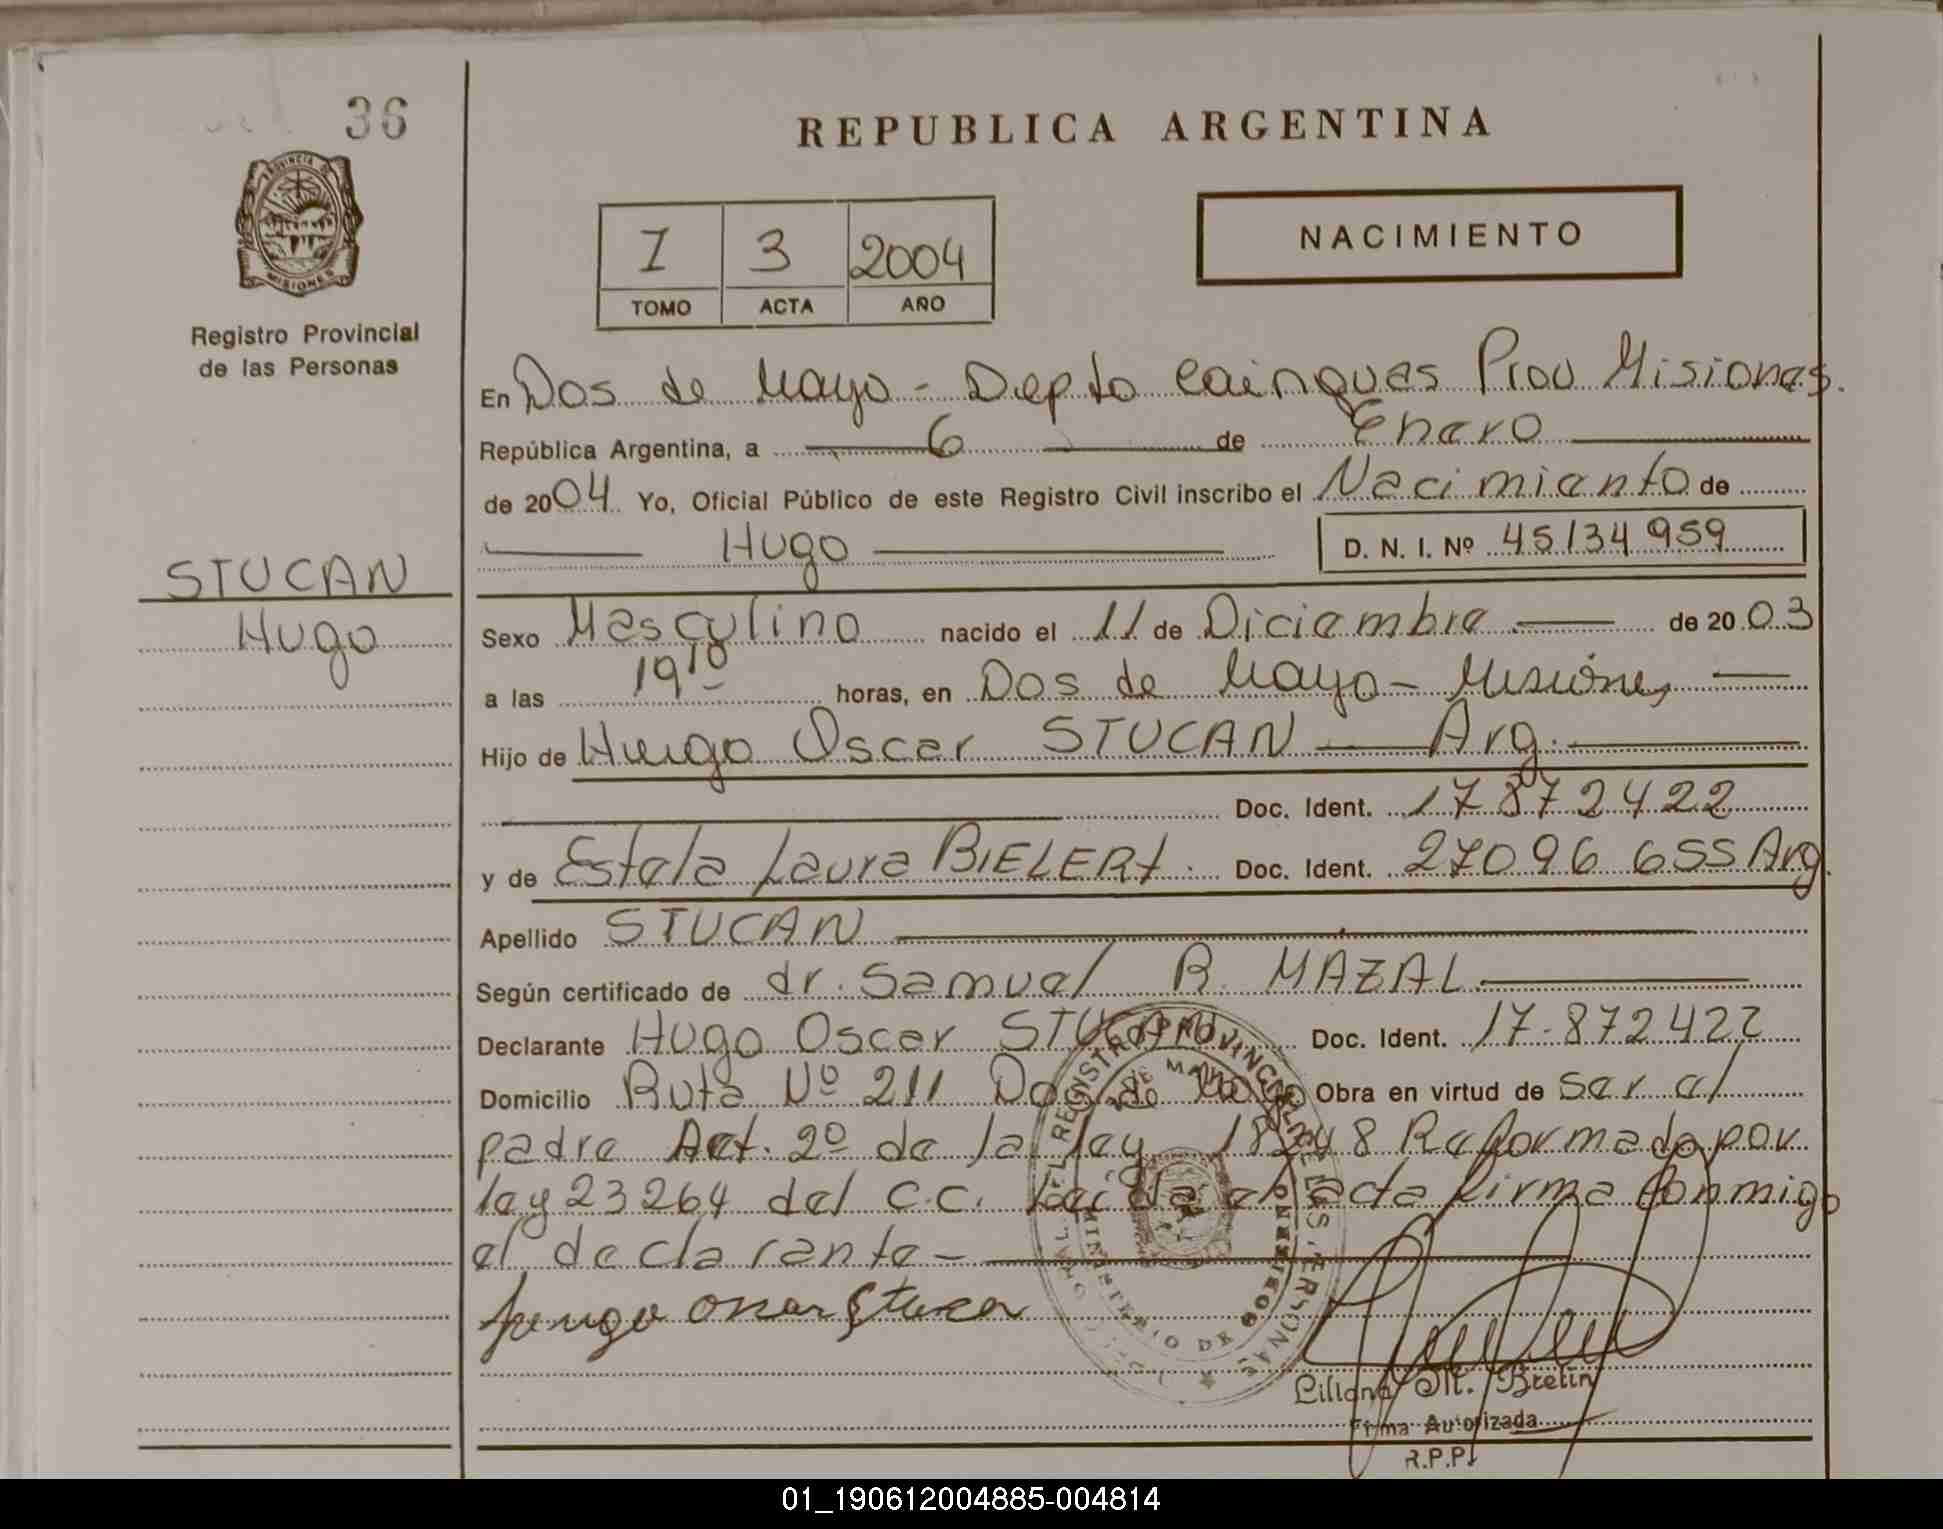 36
REPUBLICA ARGENTINA
PROVINCIA DE
MISIONES
Registro Provincial
de las Personas
I 3 2004
TOMO ACTA AÑO
NACIMIENTO
En Dos de Mayo - Depto Cainguas Prov Misiones.
República Argentina, a 6 de Enero
de 2004 Yo, Oficial Público de este Registro Civil inscribo el Nacimiento de
Hugo
D. N. I. Nº 45134959
STUCAN
Hugo
Sexo Masculino nacido el 11 de Diciembre de 2003
a las 19 10 horas, en Dos de Mayo - Misiones
Hijo de Hugo Oscar STUCAN Arg.
Doc. Ident. 17872422
y de Estela Laura BIELERT. Doc. Ident. 27096655 Arg.
Apellido STUCAN
Según certificado de dr. Samuel R. MAZAL
Declarante Hugo Oscar STUCAN Doc. Ident. 17.872422
Domicilio Ruta Nº 211 Dos de Mayo Obra en virtud de ser el
padre Art. 2º de la ley 18248 Reformado por
ley 23264 del C.C. Leida el acta firma conmigo
el declarante -
Hugo Oscar Stucan
REGISTRO PROVINCIAL DE LAS PERSONAS
MINISTERIO DE GOBIERNO
Liliana M. Bretin
Firma Autorizada
R.P.P.
01_190612004885-004814